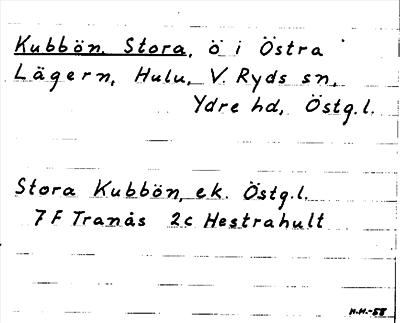 Kubbön, Stora, ö i Östra
Lägern, Hulu, V. Ryds sn,
Ydre hd, Östg.l.
Stora Kubbön, ek. Östg.l.
7 F Tranås 2c Hestrahult
H.H.-58